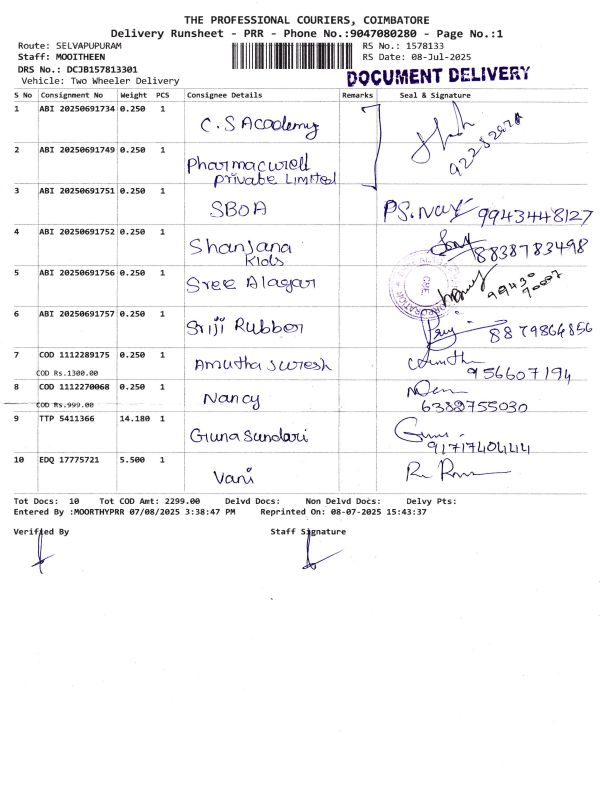 THE PROFESSIONAL COURIERS, COIMBATORE
Delivery Runsheet - PRR - Phone No.:9047080280 - Page No.:1
Route: SELVAPUPURAM RS No.: 1578133
Staff: MOOITHEEN RS Date: 08-Jul-2025
DRS No.: DCJB157813301
Vehicle: Two Wheeler Delivery DOCUMENT DELIVERY
S No Consignment No Weight PCS Consignee Details Remarks Seal & Signature
1 ABI 20250691734 0.250 1 C.S Academy
2 ABI 20250691749 0.250 1 Pharmacwell
private Limited
3 ABI 20250691751 0.250 1 SBOA 9943448127
4 ABI 20250691752 0.250 1 Shanjana 8838783498
Kids
5 ABI 20250691756 0.250 1 Sree Alagar
6 ABI 20250691757 0.250 1 Sriji Rubber 8879864856
7 COD 1112289175 0.250 1 Amutha suresh
COD Rs.1300.00 956607194
8 COD 1112270068 0.250 1 Nancy
COD Rs.999.00 6382755030
9 TTP 5411366 14.180 1 Guna Sundari
10 EDQ 17775721 5.500 1 Vani
Tot Docs: 10 Tot COD Amt: 2299.00 Delvd Docs: Non Delvd Docs: Delvy Pts:
Entered By :MOORTHYPRR 07/08/2025 3:38:47 PM Reprinted On: 08-07-2025 15:43:37
Verified By Staff Signature